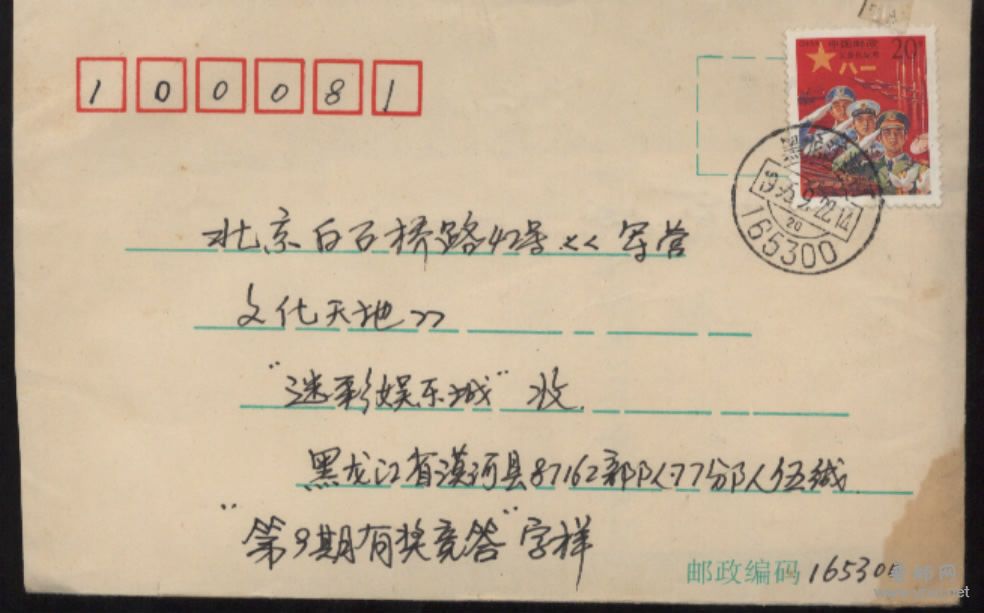 中国邮政
20分
八一
1 0 0 0 8 1
黑龙江
19
165300
北京白石桥路42号《军营
文化天地》
"迷彩娱乐城"收
黑龙江省漠河县87162部队77分队伍绒
"第9期有奖竞答"字样
邮政编码 165300